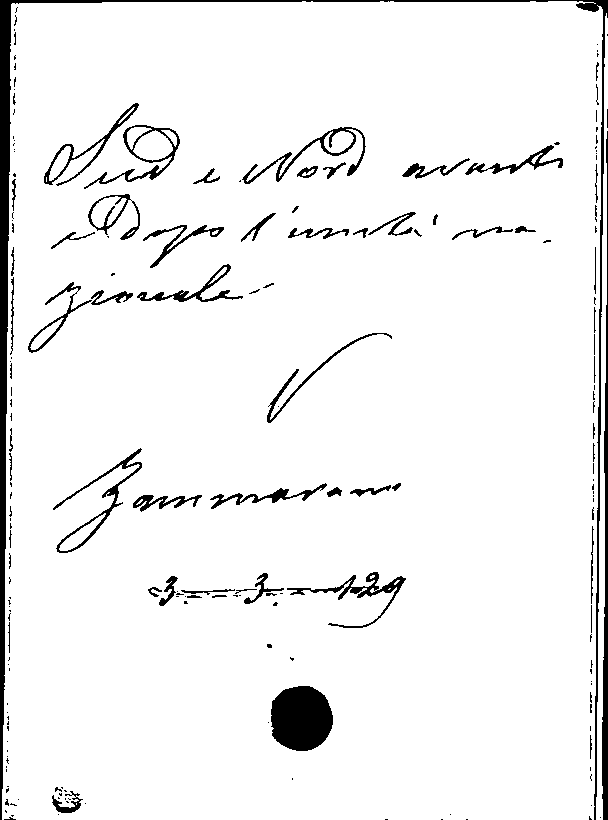 Sud e Nord avanti
e dopo l'unità na-
zionale
V
Zammarano
3. 3. 129